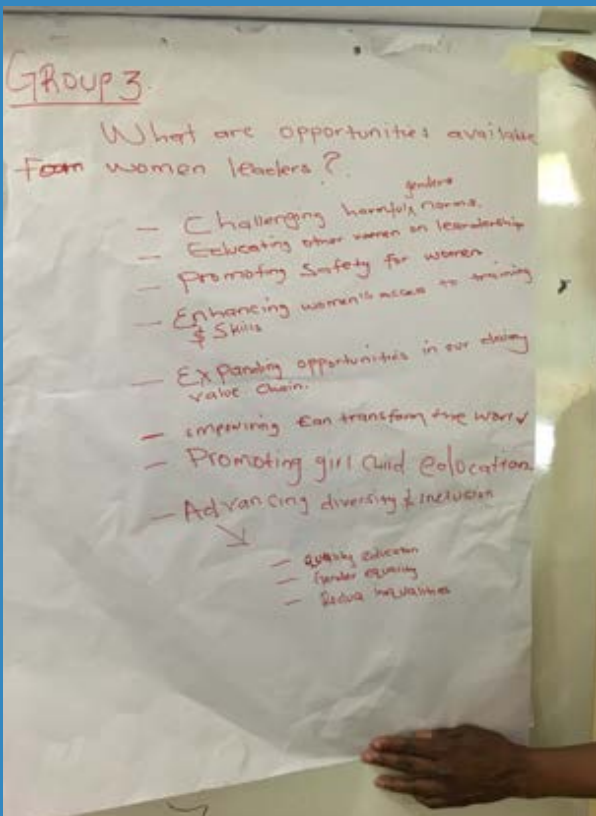 GROUP 3.
What are opportunities available
women leaders ?
gender
- Challenging harmful norms.
- Educating other women on leadership
- Promoting Safety for women
- Enhancing women's access to training
& Skills
- Expanding opportunities in our
value chain.
- can transform the world
- Promoting girl child
- Advancing diversity & inclusion
- quality education
- Gender equality
- Reduce inequalities